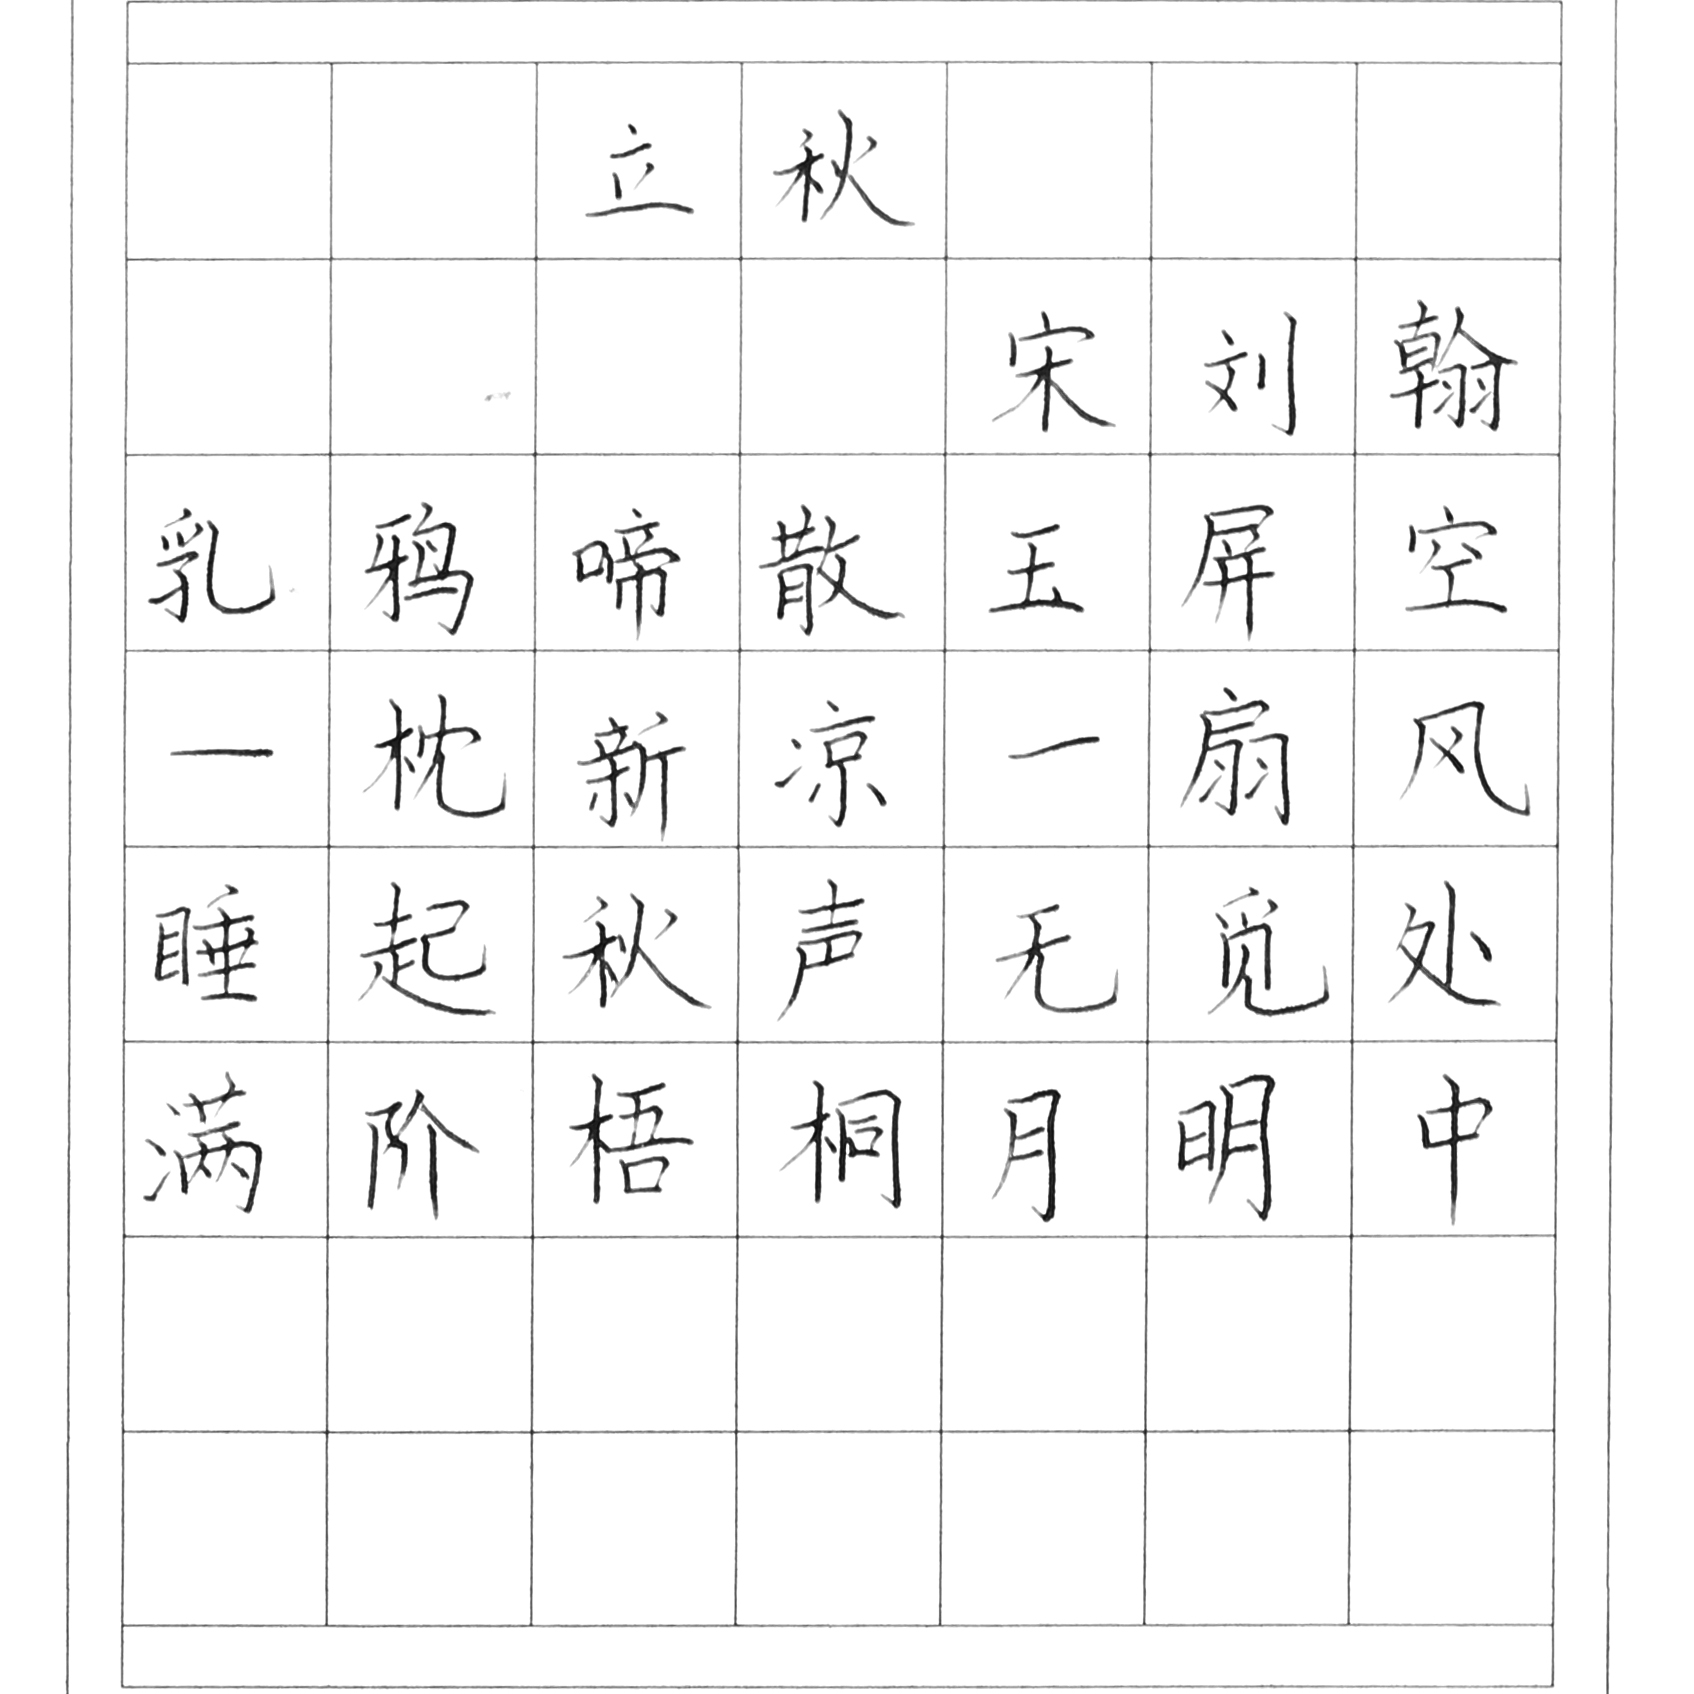 立秋
宋刘翰
乳鸦啼散玉屏空
一枕新凉一扇风
睡起秋声无觅处
满阶梧桐月明中